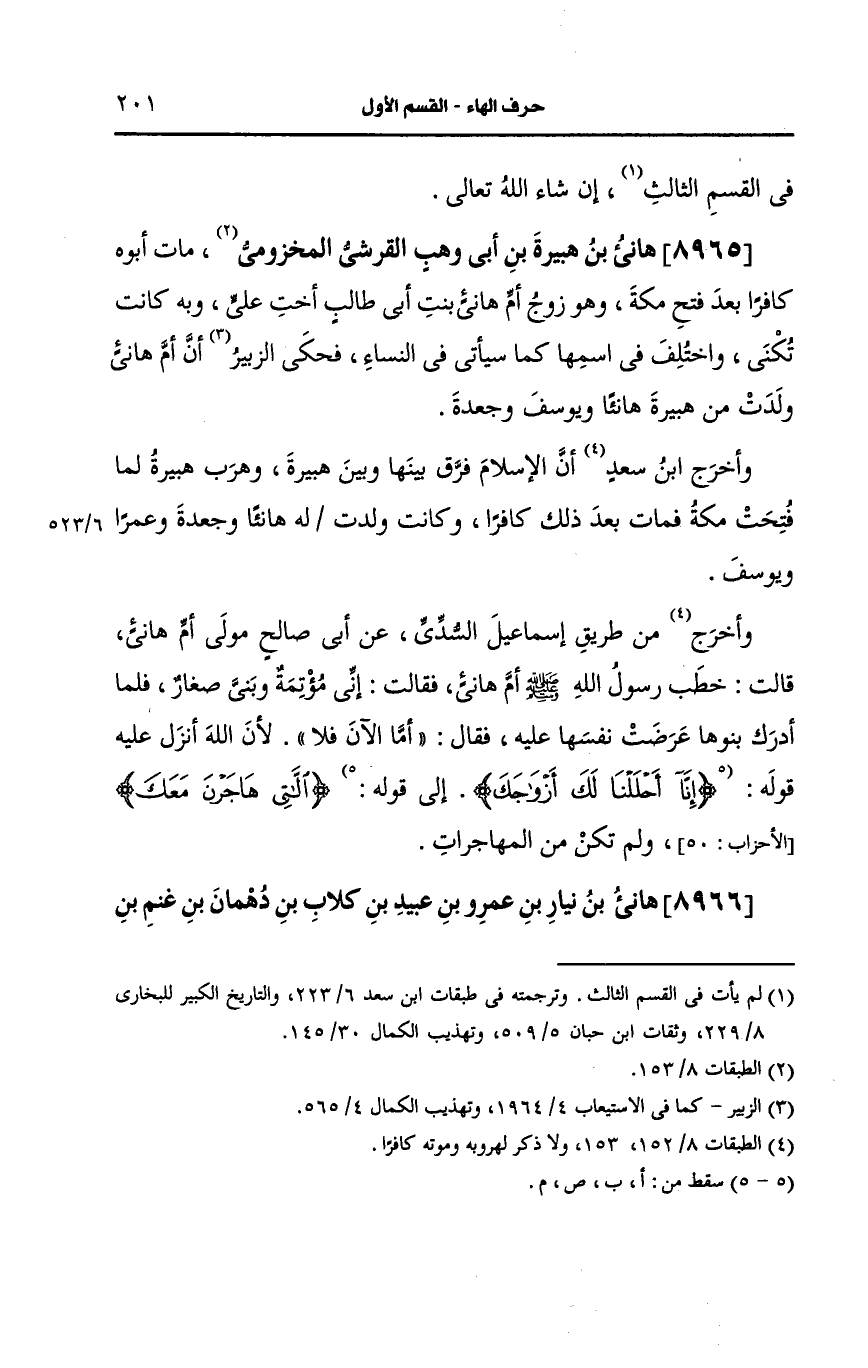 حرف الهاء - القسم الأول ٢٠١
فى القسمِ الثالثِ(١) ، إن شاء اللهُ تعالى .
[٨٩٦٥] هانئُ بنُ هبيرةَ بنِ أبى وهبٍ القرشىُّ المخزومىُّ(٢) ، مات أبوه
كافرًا بعدَ فتحِ مكةَ ، وهو زوجُ أمِّ هانئَ بنتِ أبى طالبٍ أختِ علىٍّ ، وبه كانت
تُكْنَى ، واختُلِفَ فى اسمِها كما سيأتى فى النساءِ ، فحكَى الزبيرُ(٣) أنَّ أمَّ هانئَ
ولَدَتْ من هبيرةَ هانئًا ويوسفَ وجعدةَ .
وأخرَج ابنُ سعدٍ(٤) أنَّ الإسلامَ فرَّق بينَها وبينَ هبيرةَ ، وهرَب هبيرةُ لما
فُتِحَتْ مكةُ فمات بعدَ ذلك كافرًا ، وكانت ولدت / له هانئًا وجعدةَ وعمرًا ٥٢٣/٦
ويوسفَ .
وأخرَج(٤) من طريقِ إسماعيلَ السُّدِّىِّ ، عن أبى صالحٍ مولَى أمِّ هانئَ،
قالت : خطَب رسولُ اللهِ ﷺ أمَّ هانئَ، فقالت : إنِّى مُؤْتِمَةٌ وبَنىَّ صغارٌ ، فلما
أدرَك بنوها عَرَضَتْ نفسَها عليه ، فقال : « أمَّا الآنَ فلا » . لأنَ اللهَ أنزَل عليه
قولَه : (٥﴿إِنَّآ أَحْلَلْنَا لَكَ أَزْوَٰجَكَ﴾ . إلى قوله :٥) ﴿ٱلَّٰتِى هَاجَرْنَ مَعَكَ﴾
[الأحزاب : ٥٠] ، ولم تكنْ من المهاجراتِ .
[٨٩٦٦] هانئُ بنُ نيارِ بنِ عمرِو بنِ عبيدِ بنِ كلابِ بنِ دُهْمانَ بنِ غنمِ بنِ
(١) لم يأت فى القسم الثالث . وترجمته فى طبقات ابن سعد ٢٢٣/٦، والتاريخ الكبير للبخارى
٢٢٩/٨، وثقات ابن حبان ٥٠٩/٥، وتهذيب الكمال ١٤٥/٣٠.
(٢) الطبقات ١٥٣/٨.
(٣) الزبير - كما فى الاستيعاب ١٩٦٤/٤، وتهذيب الكمال ٥٦٥/٤.
(٤) الطبقات ١٥٢/٨، ١٥٣، ولا ذكر لهروبه وموته كافرًا .
(٥ - ٥) سقط من : أ ، ب ، ص ، م .